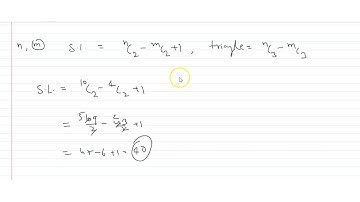 n, m S.L = ⁿC₂ - ᵐC₂ + 1 , triangle = ⁿC₃ - ᵐC₃
S.L. = ¹⁰C₂ - ⁴C₂ + 1
= - + 1
= 45 - 6 + 1 = 40